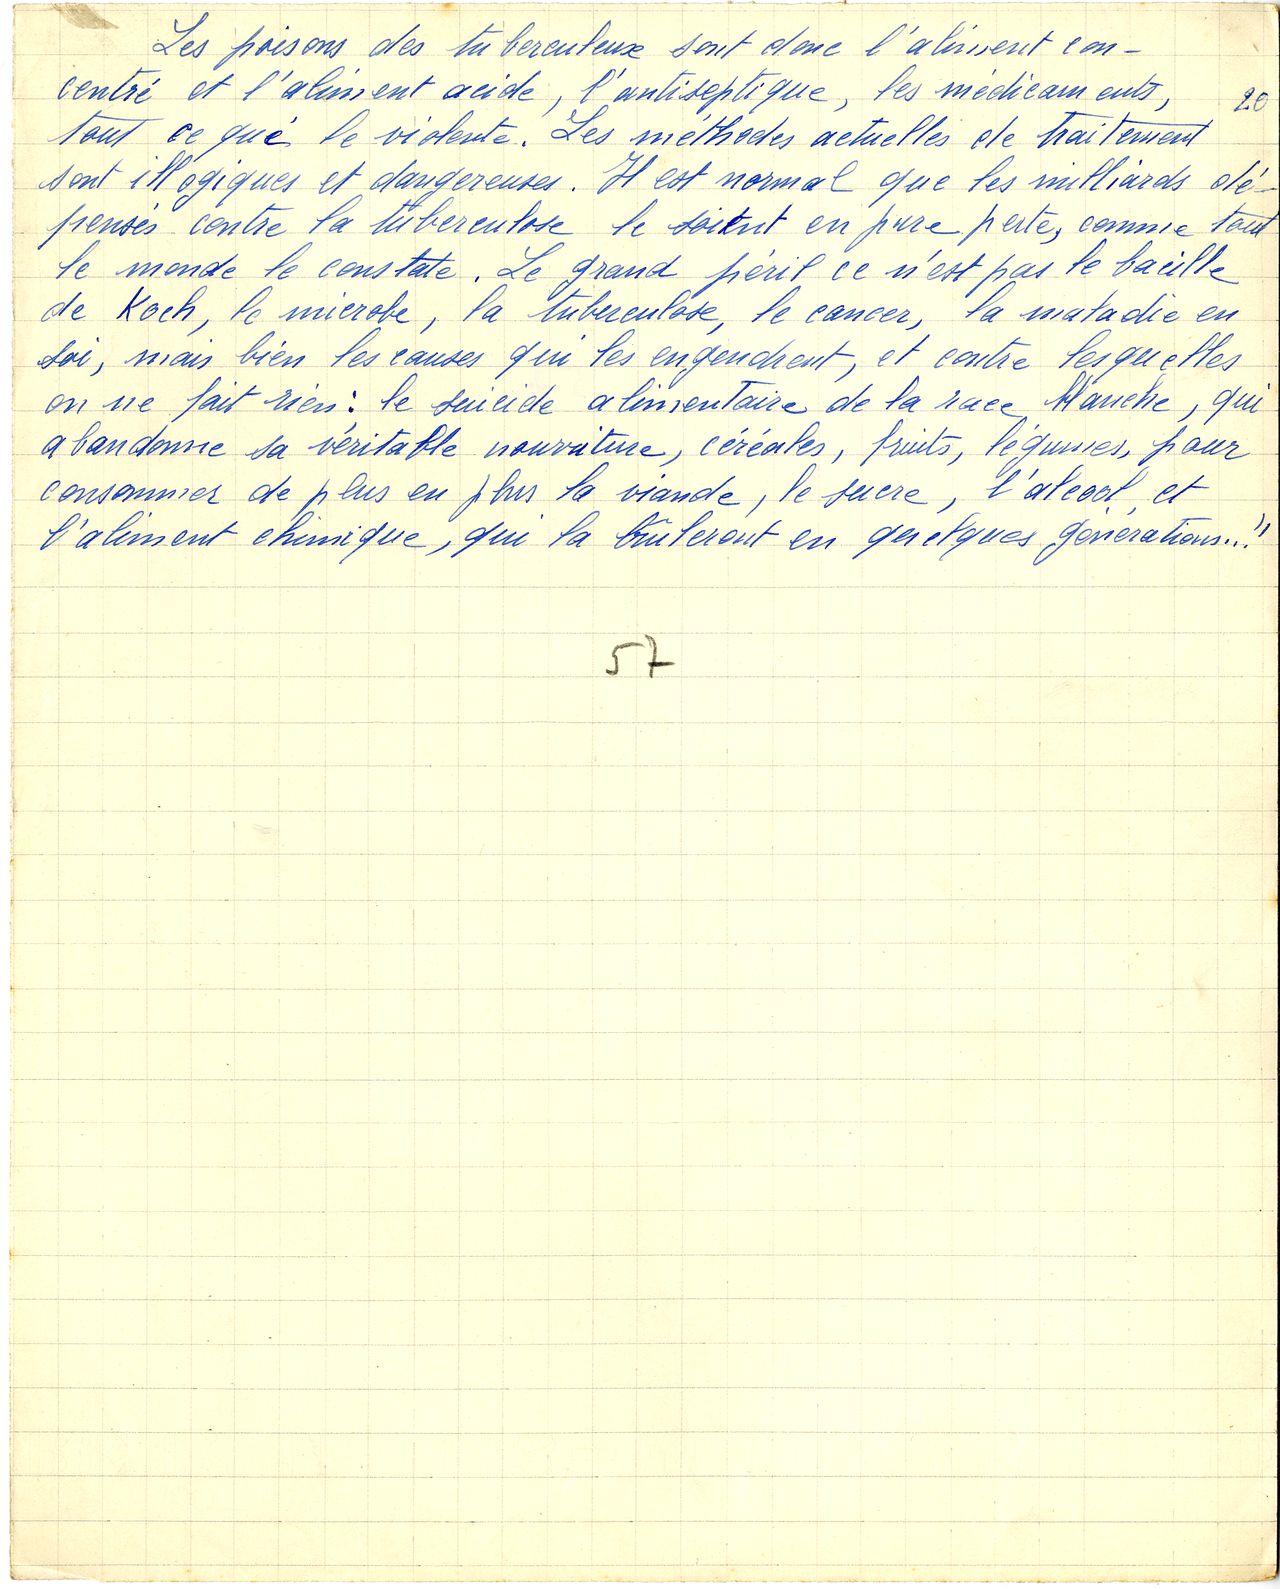 Les poisons des tuberculeux sont donc l'aliment con-
centré et l'aliment acide, l'antiseptique, les médicaments,
20
tout ce qui le violente. Les méthodes actuelles de traitement
sont illogiques et dangereuses. Il est normal que les milliards dé-
pensés contre la tuberculose le soient en pure perte, comme tout
le monde le constate. Le grand péril ce n'est pas le bacille
de Koch, le microbe, la tuberculose, le cancer, la maladie en
soi, mais bien les causes qui les engendrent, et contre lesquelles
on ne fait rien : le suicide alimentaire de la race blanche, qui
abandonne sa véritable nourriture, céréales, fruits, légumes, pour
consommer de plus en plus la viande, le sucre, l'alcool et
l'aliment chimique, qui la brûleront en quelques générations...!"
57